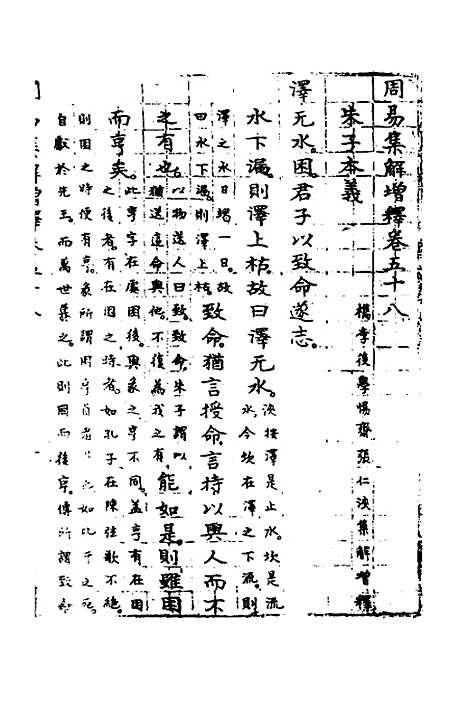 周易集解增釋卷五十八
朱子本義
檇李後學惕齋張仁浹集解增釋
澤无水困君子以致命遂志
水下漏則澤上枯故曰澤无水浹按澤是止水坎是流
水今坎在澤之下流則
澤之水日竭一日故
曰水下漏則澤上枯致命猶言授命言持以與人而不
之有也以物送人曰致致命朱子謂以
猶送這命與他不復為我之有能如是則雖困
而亨矣此亨字在處困後與彖之亨不同蓋亨有在困
之後者有在困之時者如孔子在陳弦歌不絕
則困之時便有亨彖所謂困亨貞者也如比干之死
自獻於先王而萬世集之此則困而後亨傳所謂致命